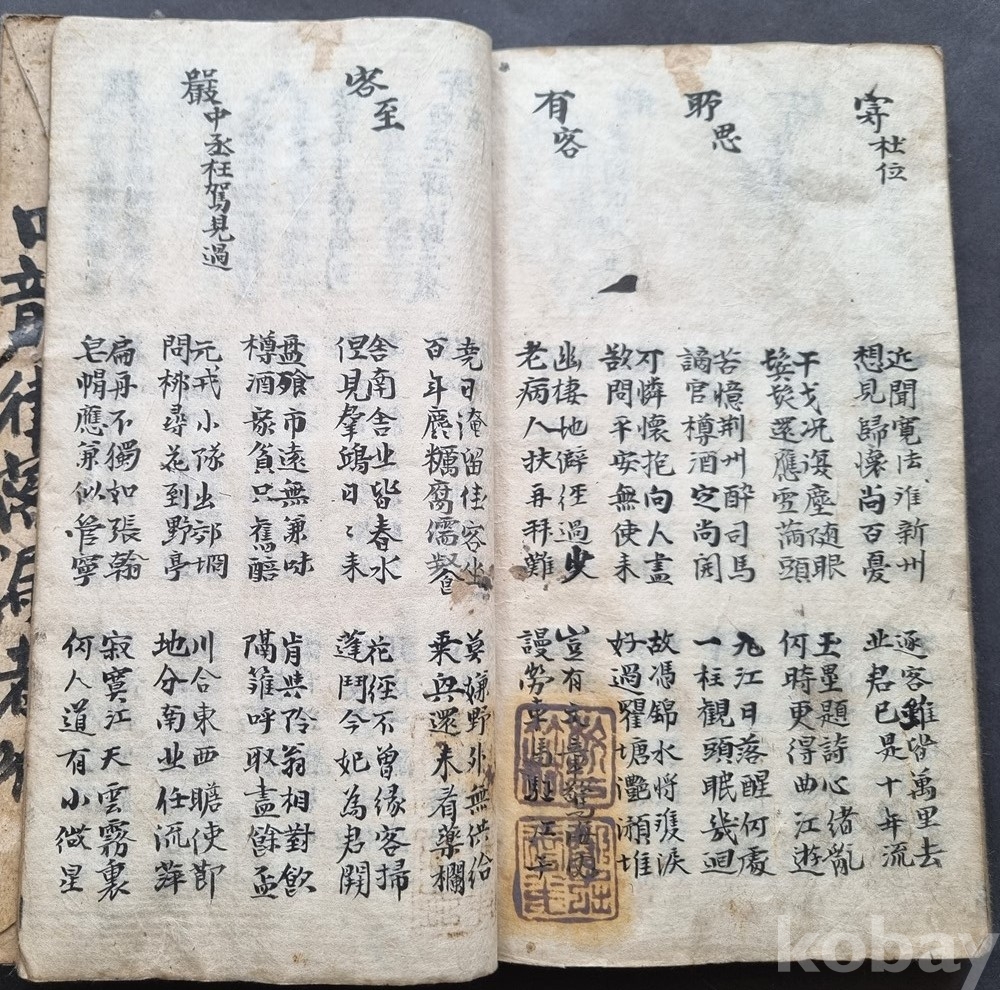 寄杜位
近聞寬法淮新州
想見歸懷尚百憂
逐客雖皆萬里去
北君已是十年流
干戈况復塵随眼
鬢髮還應雪滿頭
玉壘題詩心緒亂
何時更得曲江遊
所思
苦憶荆州醉司馬
謫官樽酒定尚開
九江日落醒何處
一柱觀頭眠幾迴
可憐懷抱向人盡
欲問平安無使来
故馮錦水將雙淚
好過瞿塘灧澦堆
有客
幽棲地僻經過少
老病人扶再拜難
豈有文章驚海內
謾勞車馬駐江干
竟日淹留佳客坐
百年麤糲腐儒餐
莫嫌野外無供給
乘興還来看藥欄
客至
舍南舍北皆春水
但見羣鷗日〻来
花徑不曾緣客掃
蓬門今始為君開
盤飱市遠無兼味
樽酒家貧只舊醅
肯與隣翁相對飲
隔籬呼取盡餘盃
嚴中丞枉駕見過
元戎小隊出郊坰
問柳尋花到野亭
川合東西瞻使節
地分南北任流萍
扁舟不獨如張翰
皂帽應兼似管寧
寂寞江天雲霧裏
何人道有小微星
kobay